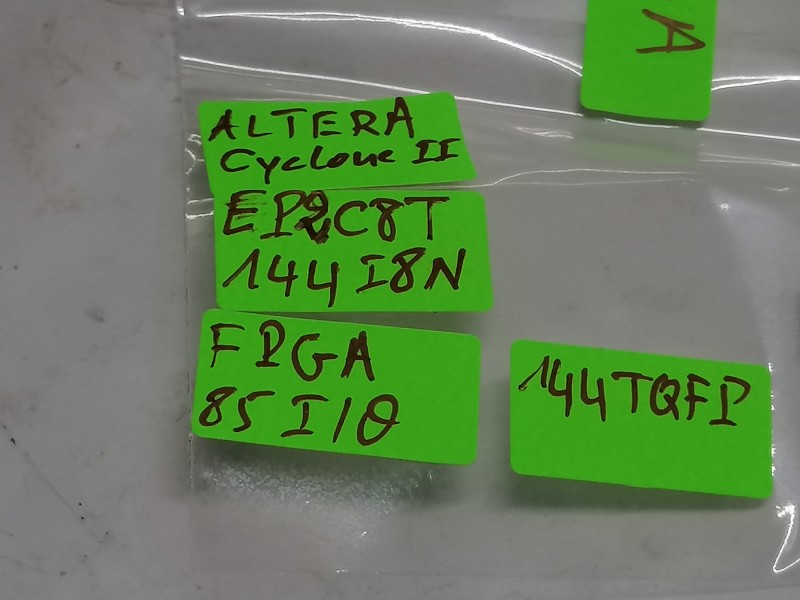 A
ALTERA
Cyclone II
EP2C8T
144I8N
FPGA
85 I/O
144TQFP